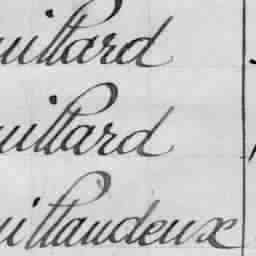 uillard
uillard
uillaudeux